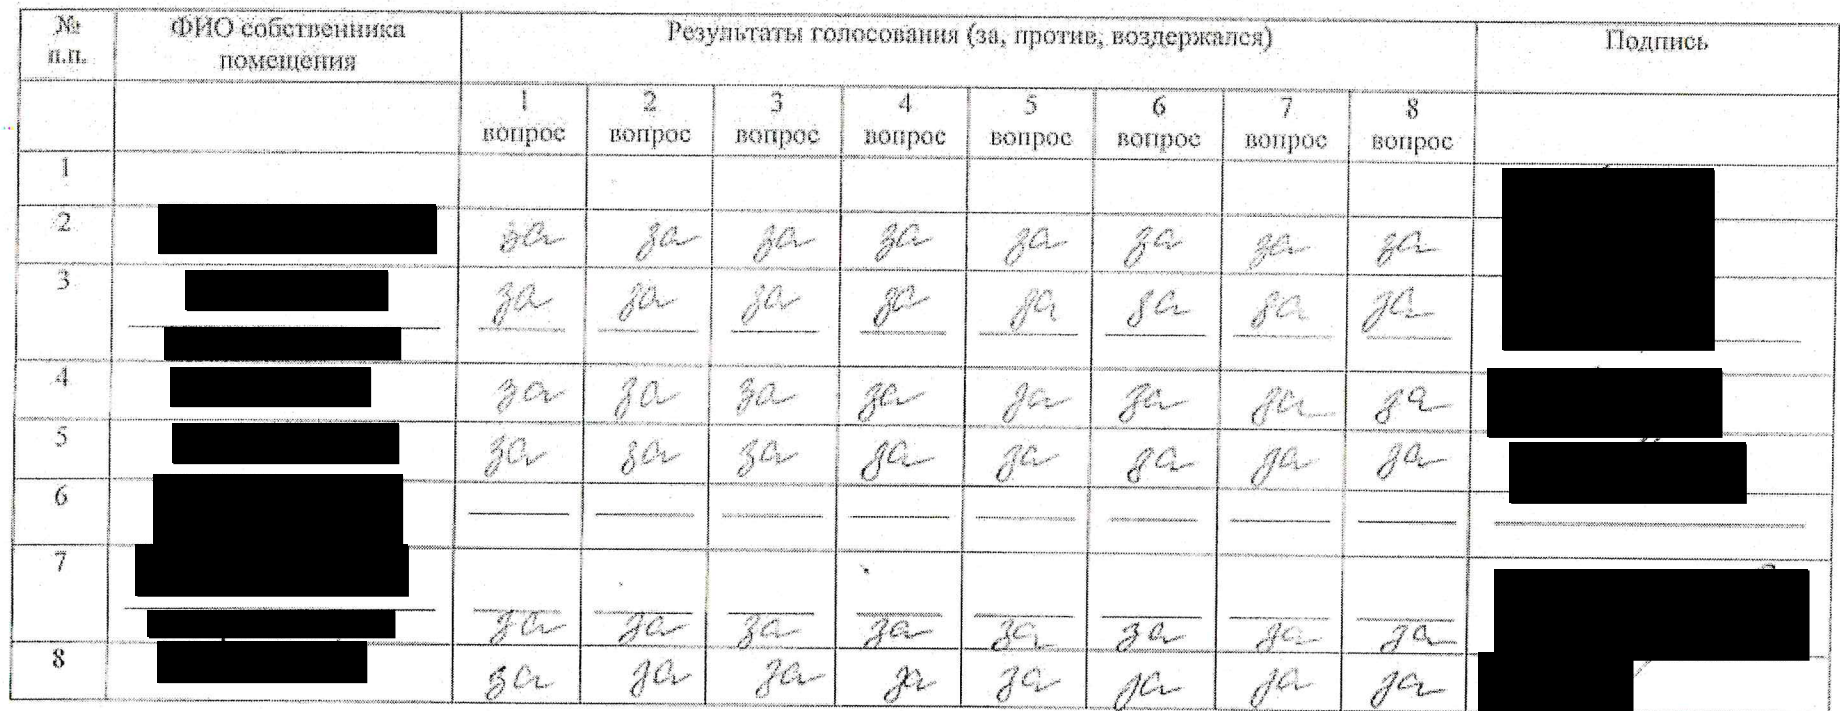 № ФИО собственника Результаты голосования (за, против, воздержался) Подпись
п.п. помещения
1 2 3 4 5 6 7 8
вопрос вопрос вопрос вопрос вопрос вопрос вопрос вопрос
1
2 за за за за за за за за
3 за за за за за за за за
4 за за за за за за за за
5 за за за за за за за за
6
7
за за за за за за за за
8 за за за за за за за за